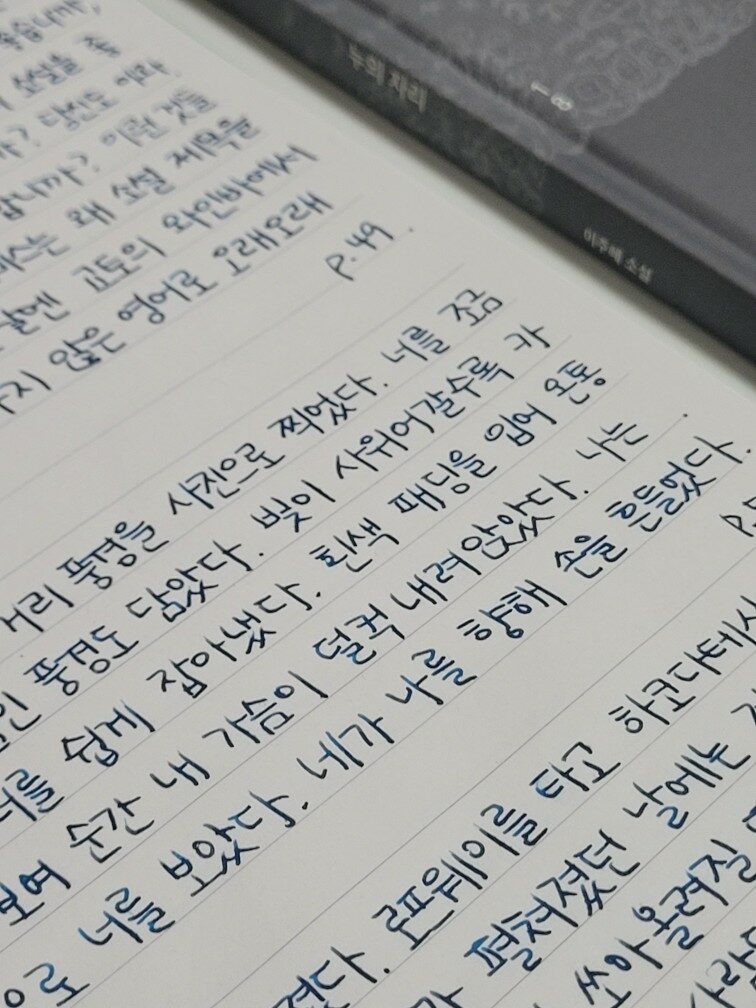 누의 자리
이주혜 소설
좋습니까,
소설을 좋
까? 당신도 이라
합니까? 이런 것들
왜 소설 제목을
날엔 교토의 와인바에서
않은 영어로 오래오래
p.49.
거리 풍경을 사진으로 찍었다. 너를 조금
풍경도 담았다. 빛이 사위어갈수록 카
너를 쉽게 잡아냈다. 흰색 패딩을 입어 온통
보여 순간 내 가슴이 덜컥 내려앉았다. 나는
으로 너를 보았다. 네가 나를 향해 손을 흔들었다.
p.
졌다. 로프웨이를 타고 하코다테
펼쳐졌던 날에는
쏘아올려질